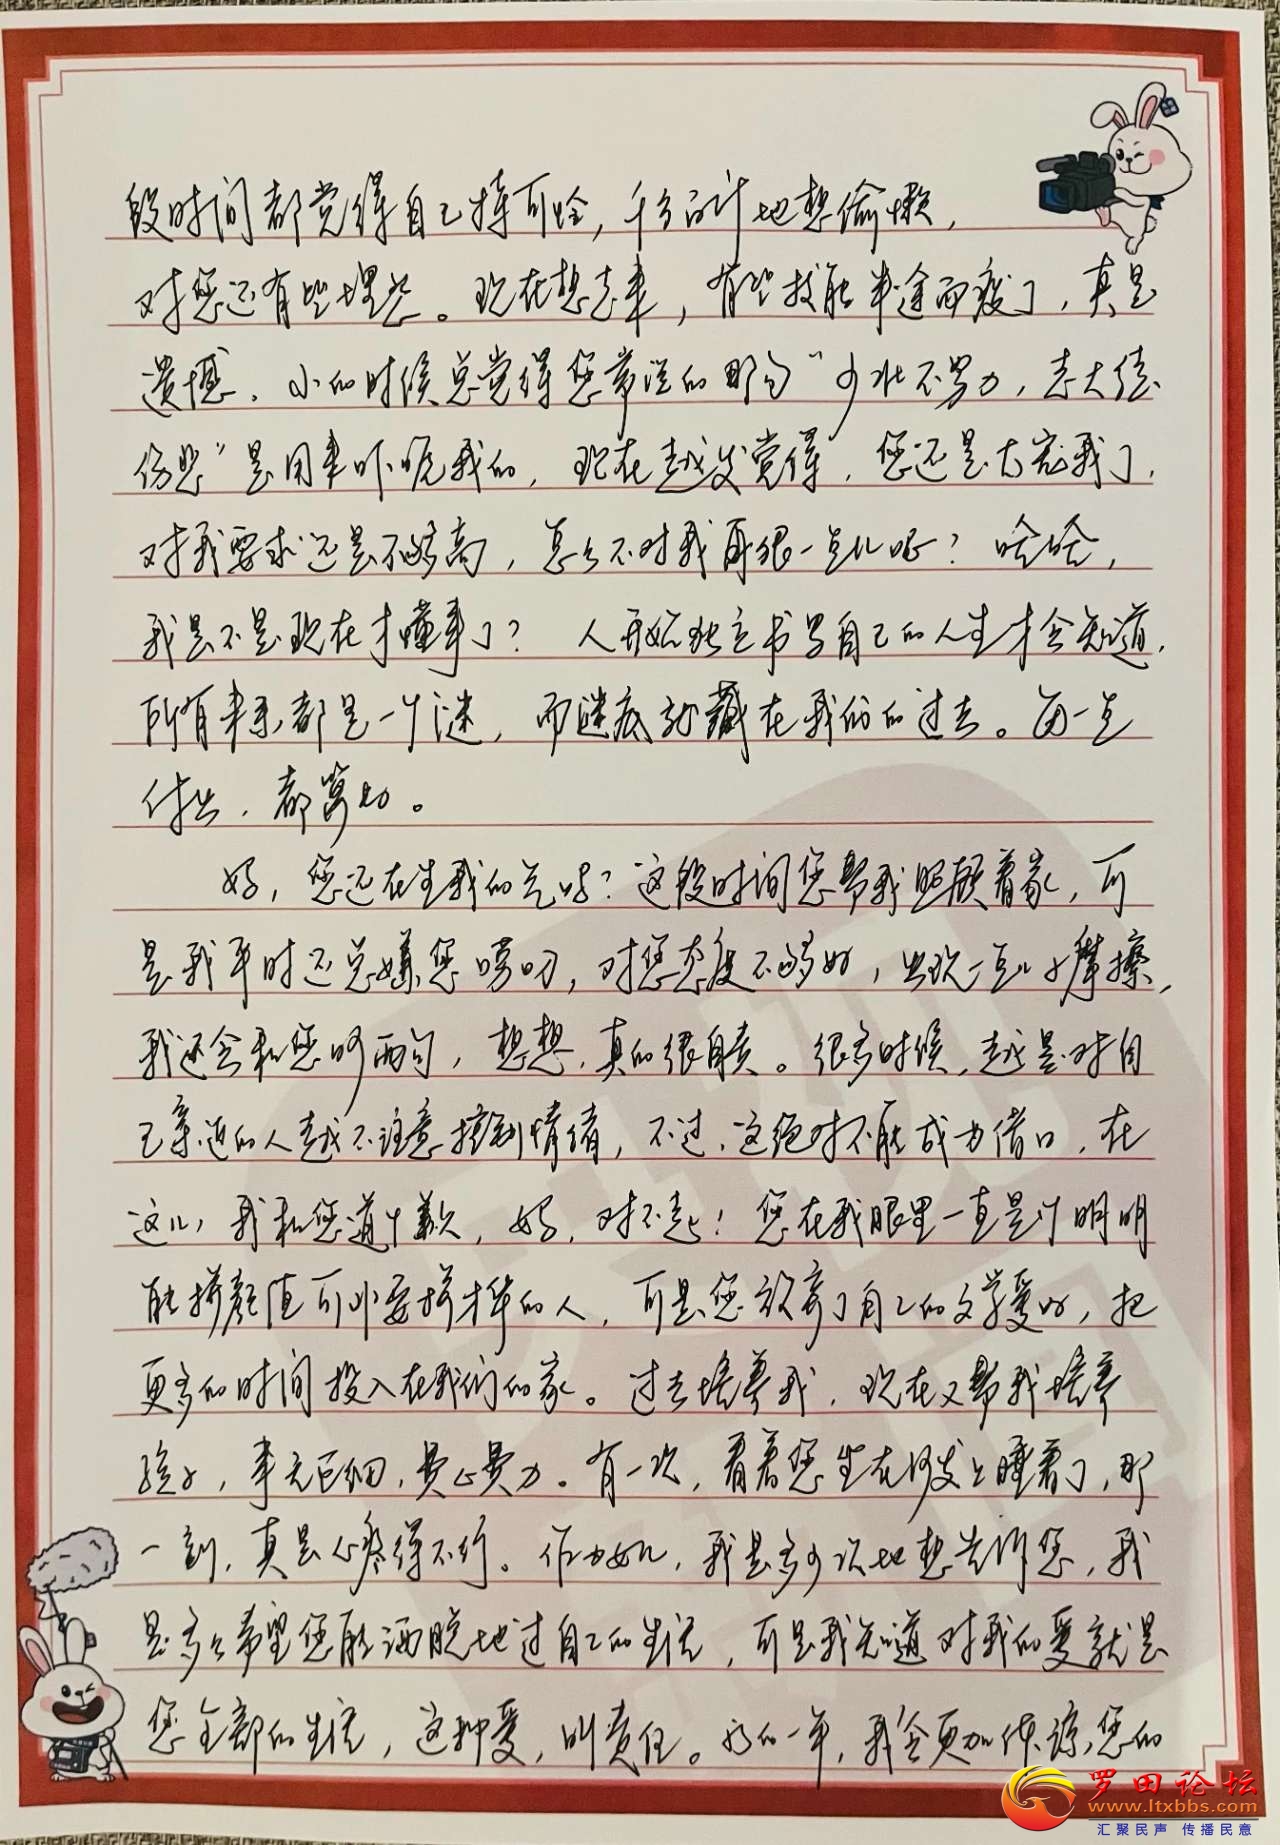 段时间都觉得自己特可怜，千方百计地想偷懒，
对您还有些埋怨。现在想起来，有些技能半途而废了，真是
遗憾。小的时候总觉得您常说的那句“少壮不努力，老大徒
伤悲”是用来吓唬我的，现在越发觉得，您还是太宠我了，
对我要求还是不够高，怎么不对我再狠一点儿呢？哈哈，
我是不是现在才懂事了？人开始独立书写自己的人生才会知道，
所有事都是一个谜，而谜底就藏在我们的过去。每一点
付出，都算数。
妈，您还在生我的气吗？这段时间您帮我照顾着家，可
是我平时还总嫌您唠叨，对您态度不够好，出现一点儿小摩擦，
我还会和您吵两句，想想，真的很自责。很多时候，越是对自
己亲近的人越不注意控制情绪，不过，这绝对不能成为借口，在
这儿，我和您道个歉，妈，对不起！您在我眼里一直是个明明
能拼颜值可非要拼才华的人，可是您放弃了自己的文学爱好，把
更多的时间投入在我们的家。过去培养我，现在又帮我培养
孩子，事无巨细，费心费力。有一次，看着您坐在沙发上睡着了，那
一刻，真是心疼得不行。作为女儿，我是多少次地想告诉您，我
是多么希望您能洒脱地过自己的生活，可是我知道对我的爱就是
您全部的生活，这种爱，叫责任。新的一年，我会更加体谅您的
罗田论坛
www.ltxbbs.com
汇聚民声 传播民意